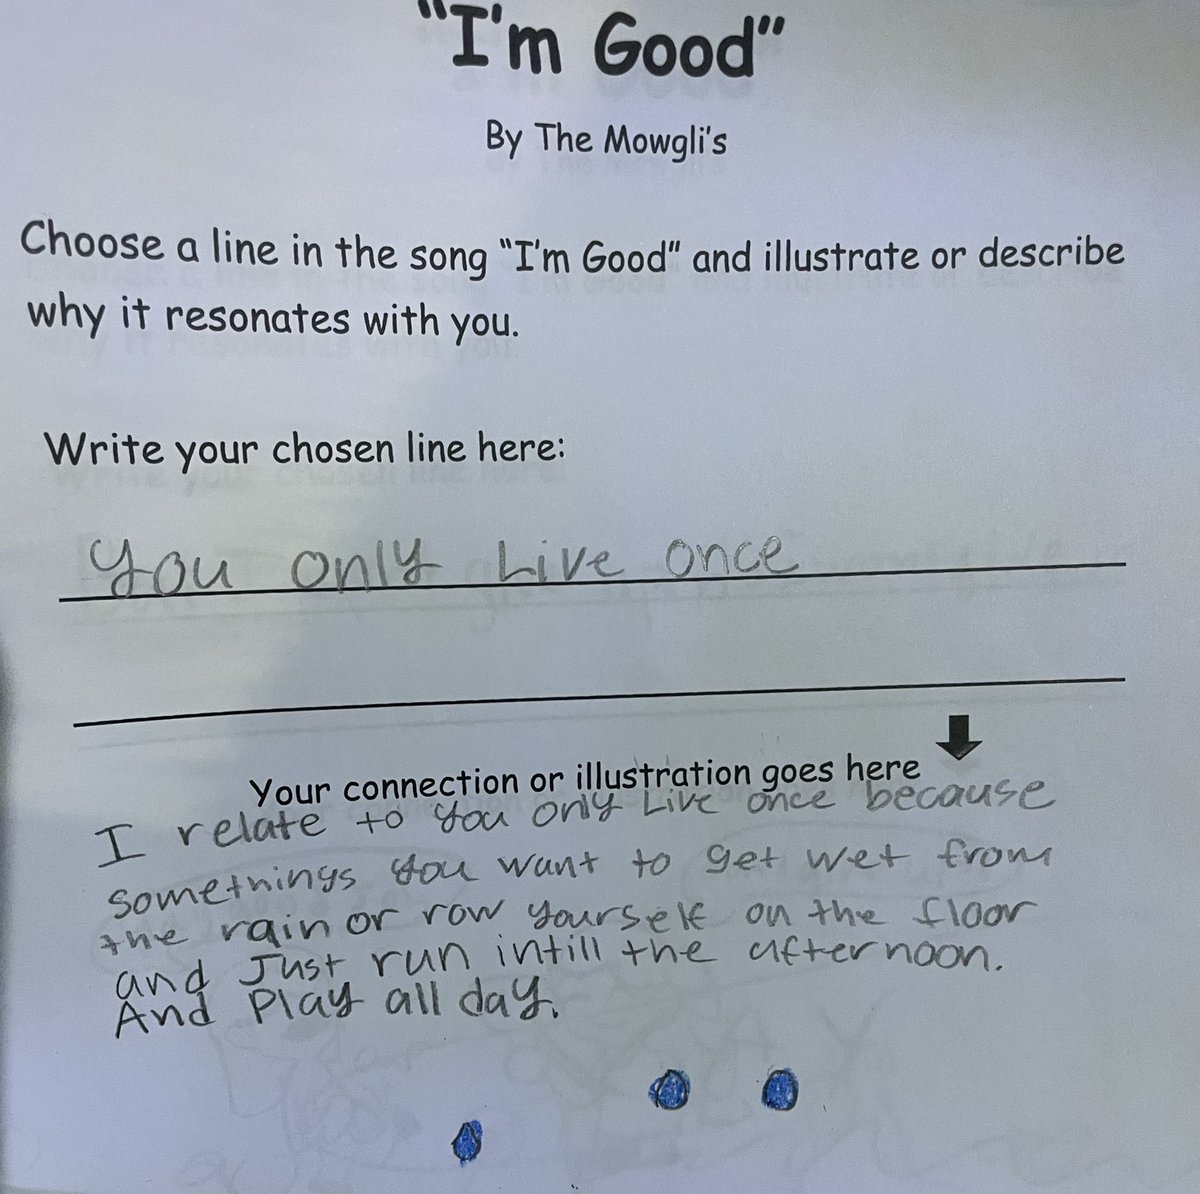 "I'm Good"
By The Mowgli's
Choose a line in the song "I'm Good" and illustrate or describe
why it resonates with you.
Write your chosen line here:
You only Live once
Your connection or illustration goes here
I relate to you only Live once because
somethings you want to get wet from
the rain or row yourself on the floor
and Just run intill the afternoon.
And Play all day.